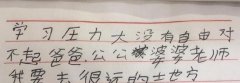 学习压力大没有自由对
不起爸爸.公公婆婆老师
我要去很远的土地方